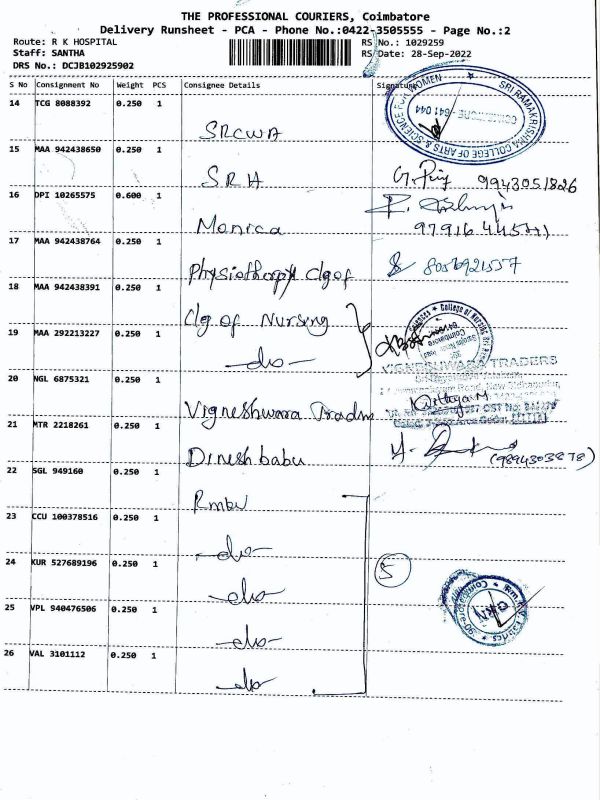 THE PROFESSIONAL COURIERS, Coimbatore
Delivery Runsheet - PCA - Phone No.:0422-3505555 - Page No.:2
Route: R K HOSPITAL
RS No.: 1029259
Staff: SANTHA
RS Date: 28-Sep-2022
DRS No.: DCJB102925902
S No Consignment No Weight PCS Consignee Details Signature
14 TCG 8088392 0.250 1
SRCWA
SRI RAMAKRISHNA COLLEGE OF ARTS & SCIENCE FOR WOMEN
COIMBATORE - 641 044
15 MAA 942438650 0.250 1
SRH 9943051826
16 DPI 10265575 0.600 1
Monica
17 MAA 942438764 0.250 1
Physiothorpy clg of 8056921557
18 MAA 942438391 0.250 1
Clg of Nursing
19 MAA 292213227 0.250 1
-do-
VIGNESHWARA TRADERS
20 NGL 6875321 0.250 1
Vigneshwara Tradrs
21 MTR 2218261 0.250 1
Dineshbabu (9894303878)
22 SGL 949160 0.250 1
Rmbw
23 CCU 100378516 0.250 1
-do-
24 KUR 527689196 0.250 1
5
-do-
25 VPL 940476506 0.250 1
-do-
26 VAL 3101112 0.250 1
-do-